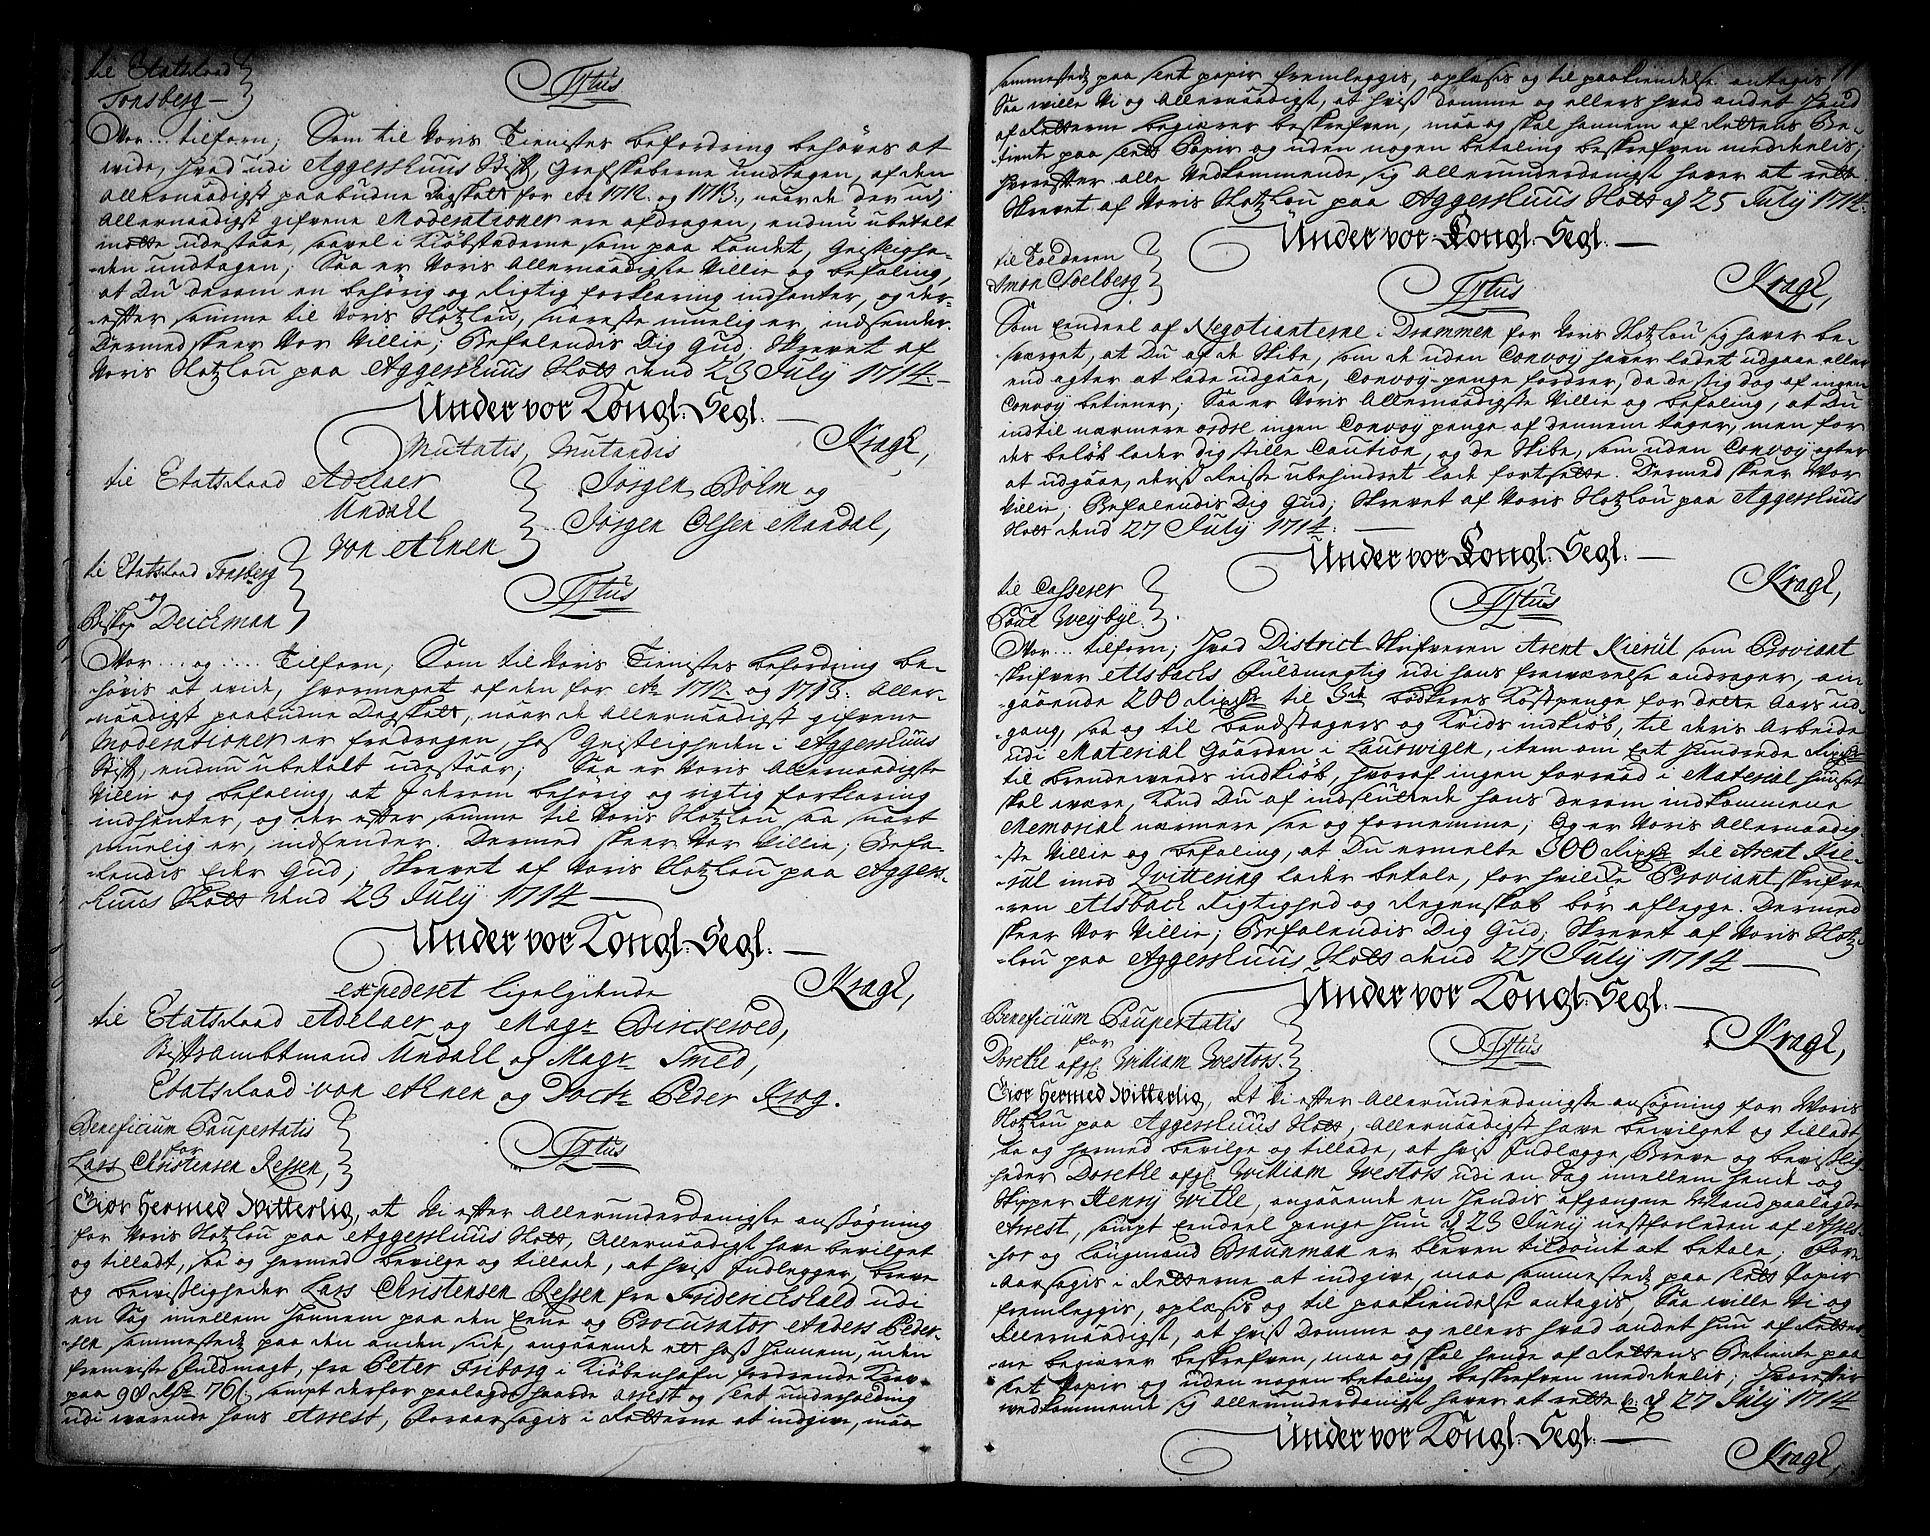 til Etatsraad
Tonsberg
Titus
Vor... tilforn; Som til Voris Tienistes befordring behøves at
vide, hvad udi Aggershuus Stift, Grefskaberne undtagen, af den
Allernaadigst paabudne Dagskatt for Ao 1712. og 1713., naar de der udj
Allernaadigst gifvene Moderationer ere afdragen, endnu ubetalt
udestaae, saavel i Kiøbstæderne som paa Landet, Geistlighe-
-den undtagen; Saa er Voris Allernaadigste Villie og befaling,
at Du derom en behørig og Rigtig forklaring indhenter, og der-
-efter samme til Voris Slotzlou, snareste muelig er, indsender.
Dermed skeer Vor Villie; Befalendis Dig Gud. Skrevet af
Voris Slotzlou paa Aggershuus Slott dend 23 July 1714.
Under vor Kongl. Segl.
Kragh,
Mutatis, Mutandis
til Etatsraad Adelaer
Undahl
Von Ahnen
Jørgen Bölm og
Jørgen Olsen Mandal,
til Etatsraad Tonsberg
og
Biskop Deichman
Titus
Vor... og .... Tilforn; Som til Voris Tienistes befordring be-
-høvis at vide, hvormeget af den for Ao 1712. og 1713. Aller-
-naadigst paabudne Dagskatt, naar de Allernaadigst gifvene
Moderationer er fradragen, hoß Geistligheden i Aggershuus
Stift, endnu ubetalt udestaar; Saa er Voris Allernaadigste
Villie og befaling, at I derom behørig og rigtig forklaring
indhenter, og der efter samme til Voris Slotzlou saa snart
muelig er, indsender. Dermed skeer Vor Villie; Befa-
-lendis Eder Gud; Skrevet af Voris Slotzlou paa Aggers-
-huus Slott dend 23 July 1714
Under vor Kongl. Segl.
Kragh,
expederet ligelydende
til Etatsraad Adelaer og Magr Birkerod,
Ambtmand Undahl og Magr Smed,
Etatsraad von Ahnen og Doctr Peder Krog.
Beneficium Paupertatis
for
Lars Christensen Ressen,
Titus
Giør Hermed Vitterlig, at Vi efter Allerunderdanigste ansøgning
for Voris Slotzlou paa Aggershuus Slott, Allernaadigst have bevilget
og tilladt, saa og hermed bevilge og tillade, at hviß Indlegger, breve
og beviisligheder Lars Christensen Ressen fra Friderichshald udi
en Sag imellem hannem paa den Eene og Procurator Anders Peder-
-sen sammesteds paa den anden side, angaaende det hoß hannem, uden
fremviste fuldmagt, fra Peter Friborg i Kiøbenhafn fordrende Krav
paa 98 Rdr 76 s. sampt derfor paalagde haarde arrest og slet underholding
udi warende hans Arrest, foraarsagis i Retterne at indgive, maa
11
sammesteds paa slet papir fremleggis, oplæses og til paakiendelse antagis
Saa wille Vi og Allernaadigst, at hviß domme og ellers hvad andet hand
af Retterne begiærer beskrefven, maa og skal hannem af Rettens Be-
-tiente paa slett Papir og uden nogen betaling beskrefven meddeelis;
hvorefter alle Vedkommende sig Allerunderdanigst haver at rette
Skrevet af Voris Slotzlou paa Aggershuus Slott d 25 July 1714.
Under vor Kongl. Segl.
Kragh,
til Tolderen
Simon Soelberg
Titus
Som Eendeel af Negotianterne i Drammen for Voris Slotzlou sig haver be-
-sværget, at Du af de Skibe, som de uden Convoy haver ladet udgaae eller
end agter at lade udgaae, Convoy-penge fordrer, da de sig dog af ingen
Convoy betiener; Saa er Voris Allernaadigste Villie og befaling, at Du
indtil nærmere ordre ingen Convoy penge af dennem tager, men for
des beløb lader dig stille Caution, og de Skibe, som uden Convoy agter
at udgaae, derß Reise ubehindret lade fortsette. Dermed skeer Vor
Villie, Befalendis Dig Gud; Skrevet af Voris Slotzlou paa Aggershuus
Slott dend 27 July 1714.
Under vor Kongl. Segl.
Kragh,
til Casserer
Poul Weybye.
Titus
Vor... tilforn; hvad District Skrifveren Arent Kierul som Proviant
skrifver Alsbachs fuldmegtig udi hans fraværelse andrager, an-
-gaaende 200 Rixdr til bødkernes Kostpenge for dette Aars ud-
gang, saa og til baandstagers og Kridts indkiøb, til deris Arbeide
udi Material Gaarden i Laurwigen, item om Eet hundrede Rixdr
til brendeveeds indkiøb, hvoraf ingen forraad i Material huuset
skal være, kand Du af indsluttede hans derom indkommene
Memorial nærmere see og fornemme; Og er Voris Allernaadig-
-ste Villie og befaling, at Du ermelte 300 Rixdr til Arent Kie-
-rul imod Qvittering lader betale, for hvilke Proviant skrifve-
-ren Alsbach Rigtighed og Regenskab bør aflegge. Dermed
skeer Vor Villie; Befalendis Dig Gud; Skrevet af Voris Slotz-
-lou paa Aggershuus Slott dend 27 July 1714
Under vor Kongl. Segl.
Kragh,
Beneficium Paupertatis
for
Dorethe afg. William Westons.
Titus
Giør Hermed Vitterlig, at Vi efter Allerunderdanigste ansøgning for Voris
Slotzlou paa Aggershuus Slott, Allernaadigst have bevilget og tilladt,
saa og hermed bevilge og tillade, at hviß Indlegge, Breve og beviislig-
heder Dorethe afg. William Westons udi en Sag imellem hende og
Skipper Henry Witte, angaaende en hendis afgangne Mand paalagde
Arrest, sampt Eendeel penge hun d 23 Juny nestforleden af Asses-
-sor og Laugmand Braunman er bleven tildömt at betale, foor-
aarsagis i Retterne at indgive, maa sammesteds paa slett Papir
fremleggis, oplæsis og til paakiendelse antagis, Saa wille Vi og
Allernaadigst, at hviß Domme og ellers hvad andet hun af Retter-
-ne begiærer beskrefven, maa og skal hende af Rettens Betiente paa
slet Papir og uden nogen betaling beskrefven meddeelis; hvorefter
vedkommende sig allerunderdanigst haver at rette d 27 July 1714
Under vor Kongl. Segl.
Kragh,